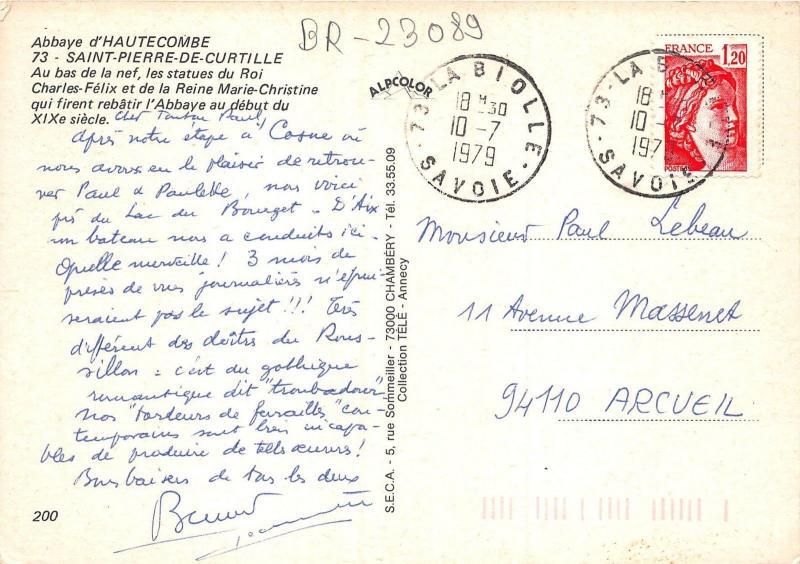 BR-23089
Abbaye d'HAUTECOMBE
73 - SAINT-PIERRE-DE-CURTILLE
Au bas de la nef, les statues du Roi
Charles-Félix et de la Reine Marie-Christine
qui firent rebâtir l'Abbaye au début du
XIXe siècle.
Cher Tonton Paul,
après notre étape à Cosne où
nous avons eu le plaisir de retrou-
ver Paul & Paulette, nous voici
près du Lac du Bourget - D'Aix
un bateau nous a conduits ici -
Quelle merveille ! 3 mois de
prises de vues journalières n'épui-
seraient pas le sujet !!! Très
différent des cloîtres du Rous-
sillon : c'est du gothique
romantique dit "troubadour"
Nos "tordeurs de ferrailles" con-
temporains sont bien incapa-
bles de produire de tels œuvres !
Bons baisers de tous les deux
200
ALPCOLOR
S.E.C.A. - 5, rue Sommeiller - 73000 CHAMBÉRY - Tél. 33.55.09
Collection TÉLÉ - Annecy
73 - LA BIOLLE
18 H 30
10 - 7
1979
SAVOIE
73 - LA B
18 H
10
197
E
SAVOIE
FRANCE 1,20
POSTES
Monsieur Paul Lebeau
11 Avenue Massenet
94110 ARCUEIL